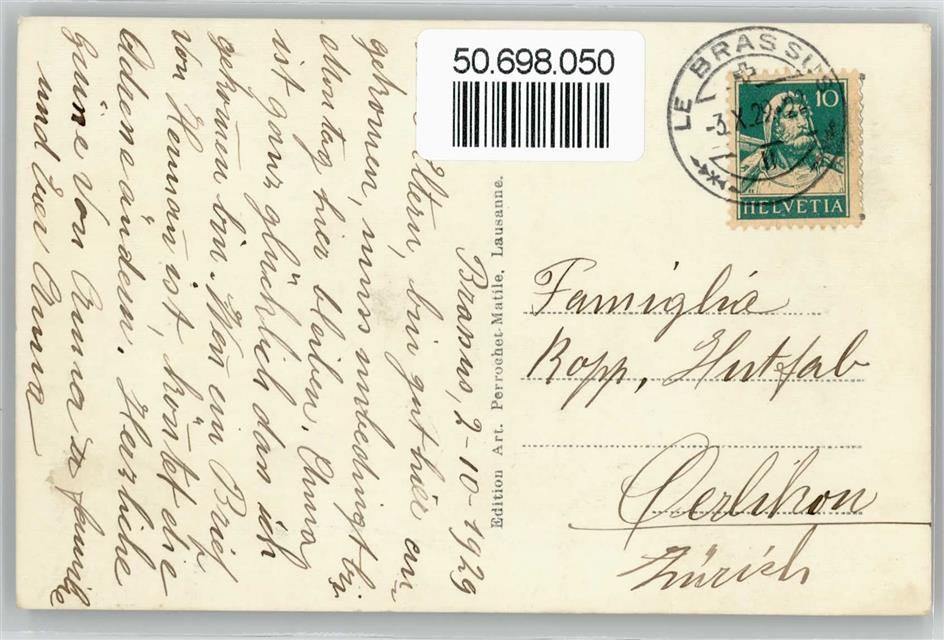 50.698.050
LE BRASSUS
-3.X.29.-22
10
HELVETIA
Edition Art. Perrochet-Matile, Lausanne.
Brassus, 2-10-1929
Eltern, bin gut hier an
gekomen, muss unbedingt bis
Montag hier bleiben, Anna
ist ganz glücklich das ich
gekomen bin. Wen ein Brief
von Herman ist, könt et die
Adresse ändern. Herzliche
Grüsse von Anna & familie
und Euer Anna
Famiglia
Kopp, Hutfab
Oerlikon
Zürich